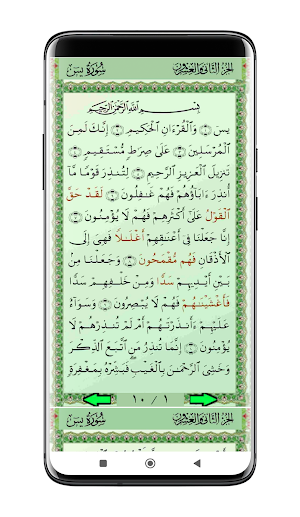 الجزء الثاني والعشرون سورة يس
بسم الله الرحمن الرحيم
يسٓ ۝ وَٱلْقُرْءَانِ ٱلْحَكِيمِ ۝ إِنَّكَ لَمِنَ
ٱلْمُرْسَلِينَ ۝ عَلَىٰ صِرَٰطٍ مُّسْتَقِيمٍ ۝
تَنزِيلَ ٱلْعَزِيزِ ٱلرَّحِيمِ ۝ لِتُنذِرَ قَوْمًا مَّآ
أُنذِرَ ءَابَآؤُهُمْ فَهُمْ غَٰفِلُونَ ۝ لَقَدْ حَقَّ
ٱلْقَوْلُ عَلَىٰٓ أَكْثَرِهِمْ فَهُمْ لَا يُؤْمِنُونَ ۝
إِنَّا جَعَلْنَا فِىٓ أَعْنَٰقِهِمْ أَغْلَٰلًا فَهِىَ إِلَى
ٱلْأَذْقَانِ فَهُم مُّقْمَحُونَ ۝ وَجَعَلْنَا مِنۢ
بَيْنِ أَيْدِيهِمْ سَدًّا وَمِنْ خَلْفِهِمْ سَدًّا
فَأَغْشَيْنَٰهُمْ فَهُمْ لَا يُبْصِرُونَ ۝ وَسَوَآءٌ
عَلَيْهِمْ ءَأَنذَرْتَهُمْ أَمْ لَمْ تُنذِرْهُمْ لَا
يُؤْمِنُونَ ۝ إِنَّمَا تُنذِرُ مَنِ ٱتَّبَعَ ٱلذِّكْرَ
وَخَشِىَ ٱلرَّحْمَٰنَ بِٱلْغَيْبِ فَبَشِّرْهُ بِمَغْفِرَةٍ
١ / ١٠
الجزء الثاني والعشرون سورة يس